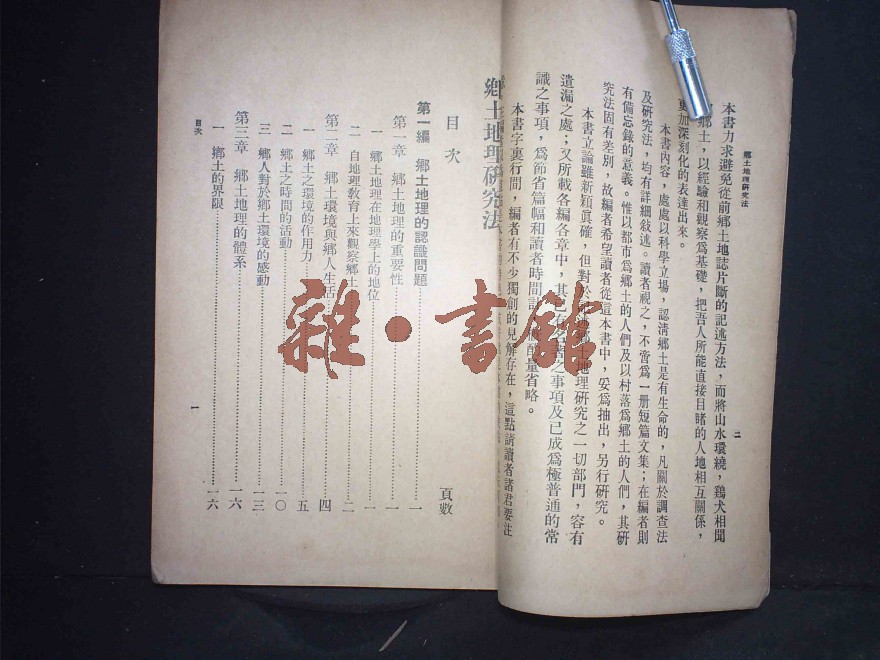 鄉土地理硏究法
二
本書力求避免從前鄉土地誌片斷的記述方法，而將山水環繞，鷄犬相聞
鄉土，以經驗和觀察爲基礎，把吾人所能直接目睹的人地相互關係，
更加深刻化的表達出來。
本書內容，處處以科學立場，認淸鄉土是有生命的，凡關於調查法
及硏究法，均有詳細敍述。讀者視之，不啻爲一册短篇文集；在編者則
有備忘錄的意義。惟以都市爲鄉土的人們及以村落爲鄉土的人們，其硏
究法固有差別，故編者希望讀者從這本書中，妥爲抽出，另行硏究。
本書立論雖新穎眞確，但對於鄉土地理硏究之一切部門，容有
遺漏之處；又所載各編各章中，其已之事項及已成爲極普通的常
識之事項，爲節省篇幅和讀者時間計，儘量省略。
本書字裏行間，編者有不少獨創的見解存在，這點請讀者諸君要注
鄉土地理硏究法
目次
頁數
第一編 鄉土地理的認識問題……一
第一章 鄉土地理的重要性……一
一 鄉土地理在地理學上的地位……一
二 自地理敎育上來觀察鄉土……二
第二章 鄉土環境與鄉人生活……四
一 鄉土之環境的作用力……五
二 鄉土之時間的活動……一〇
三 鄉人對於鄉土環境的感動……一三
第三章 鄉土地理的體系……一六
一 鄉土的界限……一六
目次
一
雜·書館